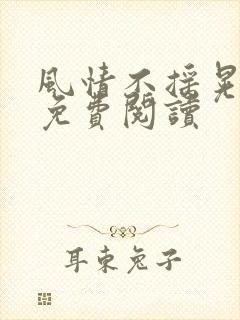 風情不搖晃
免費閱讀
耳東兔子